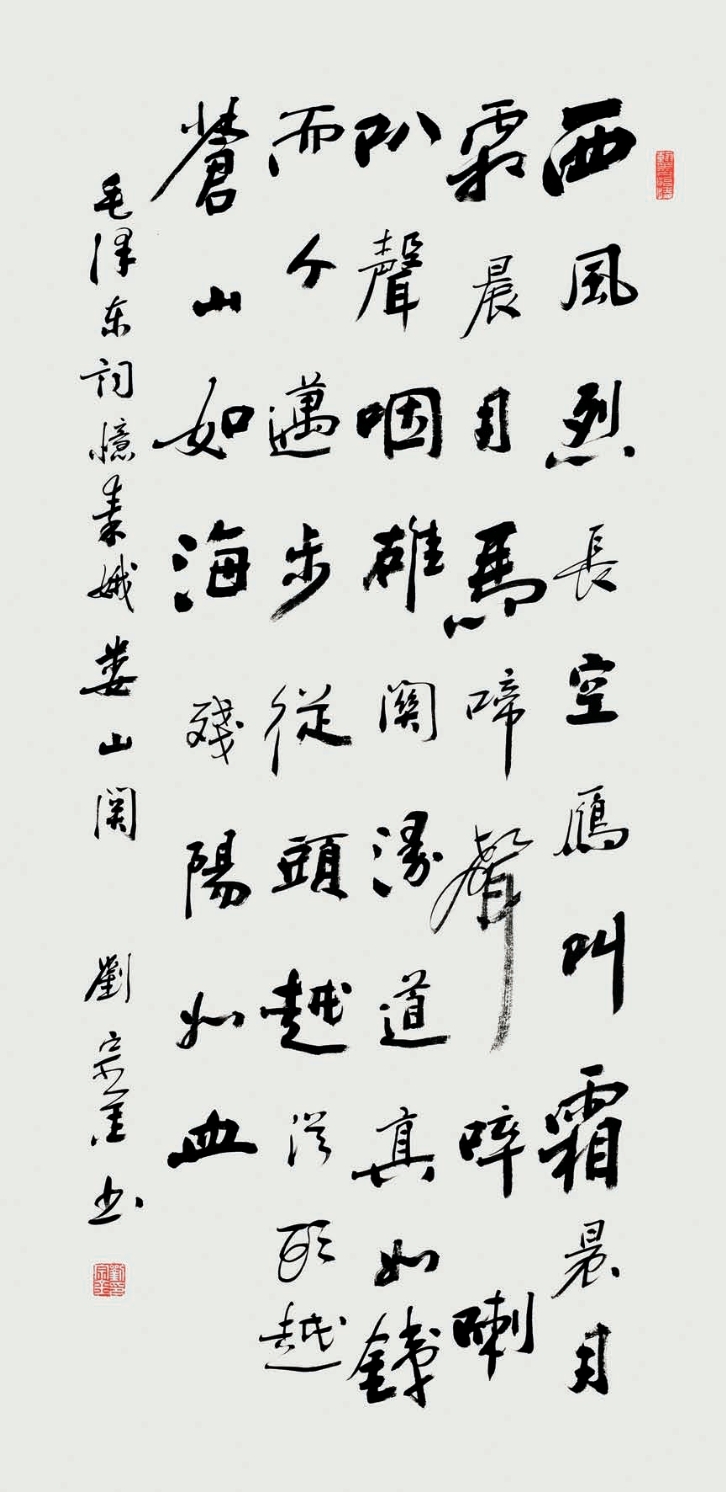 西風烈長空鴈叫霜晨月
霜晨月馬啼聲碎喇
叭聲咽雄関漫道真如鐵
而今邁步從頭越從頭越
蒼山如海殘陽如血
毛泽东詞憶秦娥娄山関 劉宗书